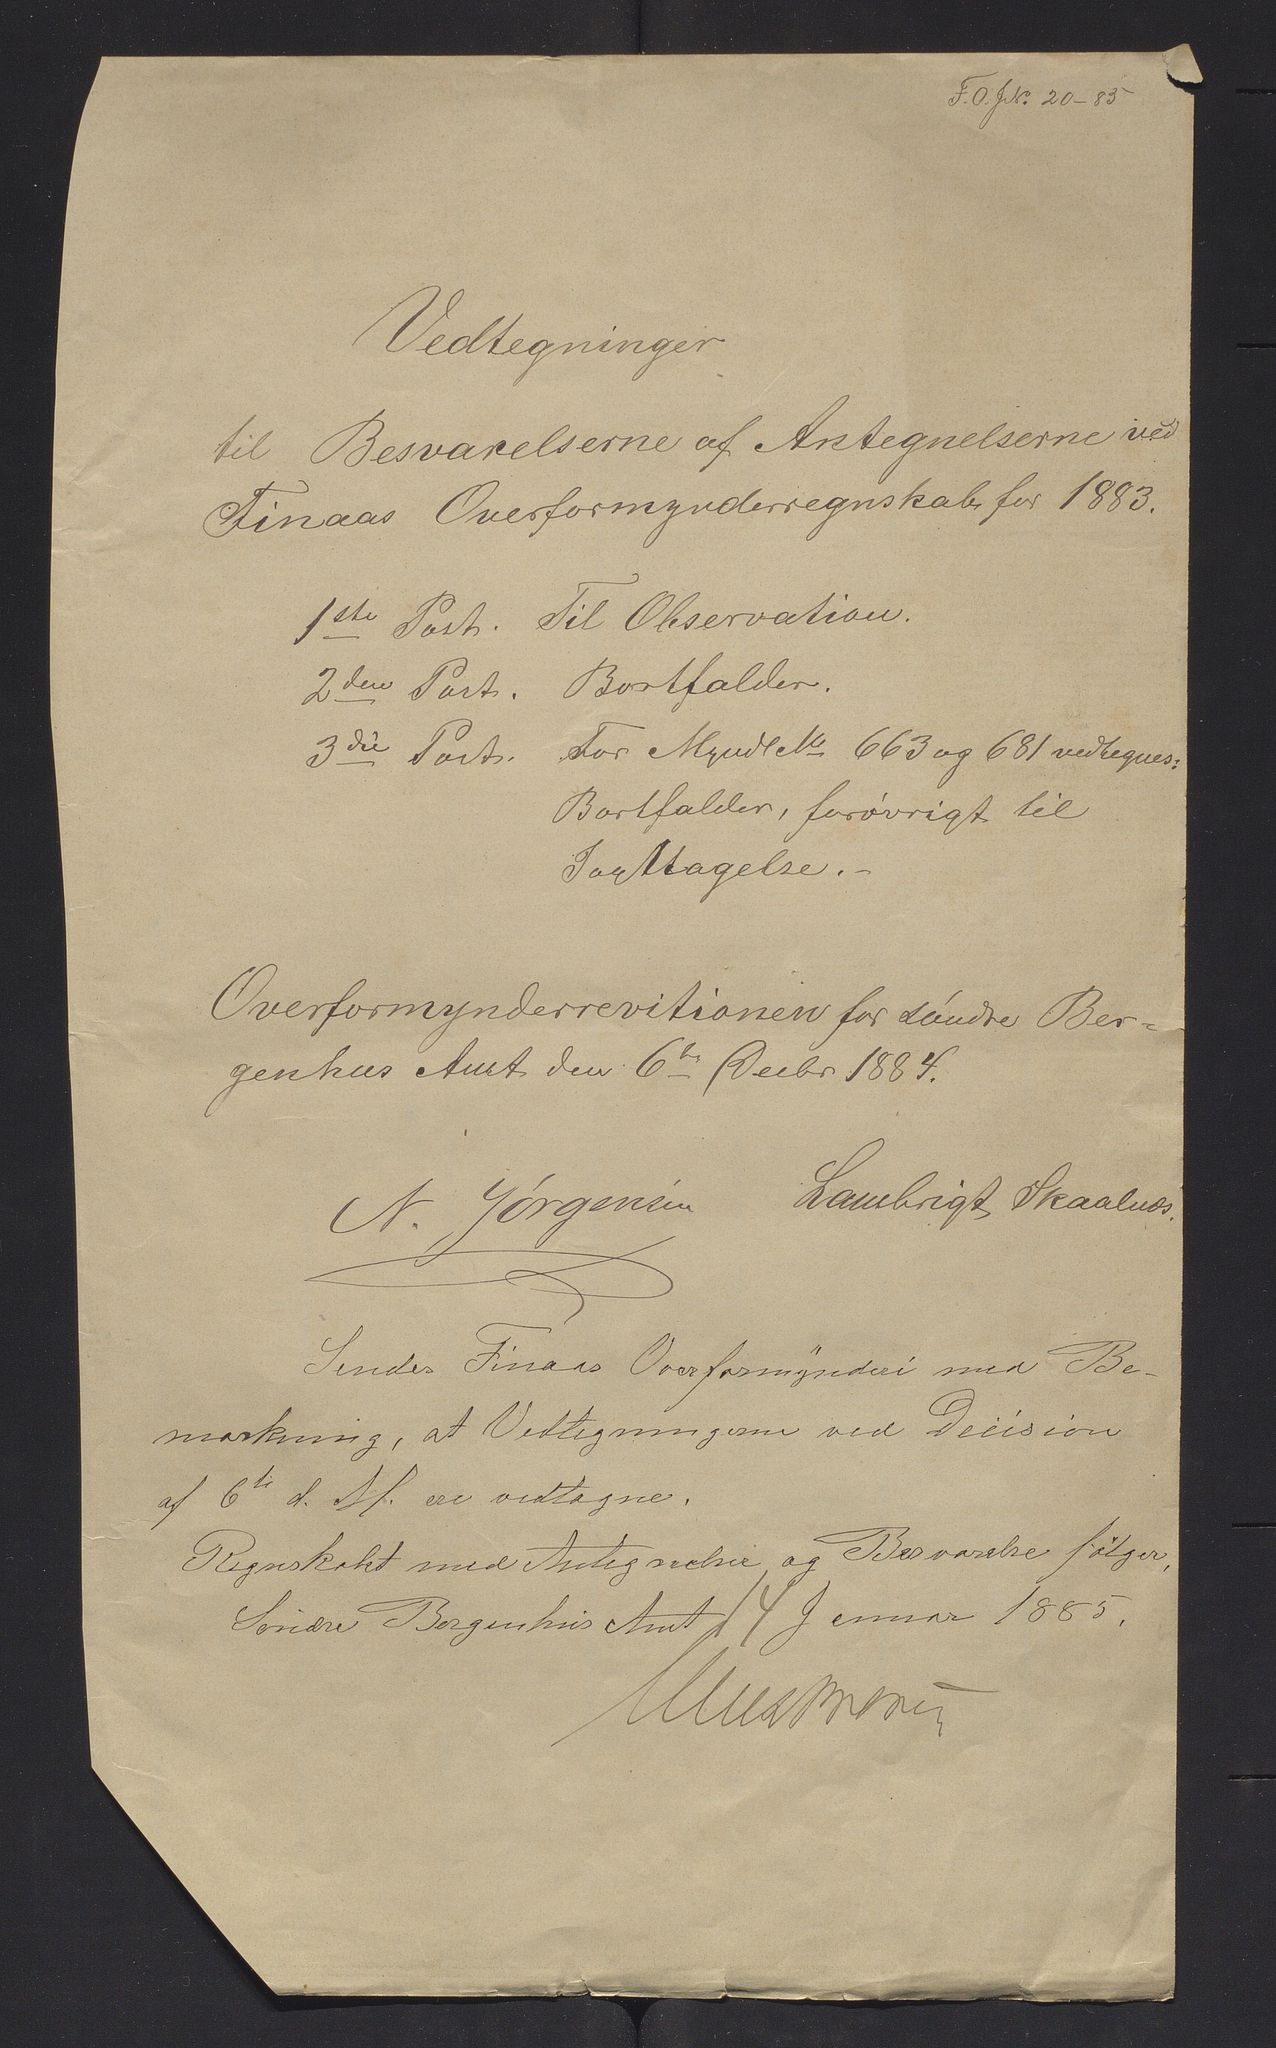 F.O.JN. 20-85
Vedtegninger
til Besvarelserne af Antegnelserne ved
Finaas Overformynderregnskab for 1883.
1ste Post. Til Observation.
2den Post. Bortfalder.
3die Post. For Myndl No 663 og 681 vedtegnes:
Bortfalder, forøvrigt til
Iagttagelse.-
Overformynderrevitionen for søndre Ber=
genhus Amt den 6te Decbr 1884.
N. Jørgensen Lambrigt Skaalnæs.
Sendes Finaas Overformynderi med Be-
mærkning, at Vedtegningerne ved Decision
af 6te d. M. ere vedtagne.
Regnskabet med Antegnelser og Besvarelse følger.
Søndre Bergenhus Amt 14 Januar 1885.